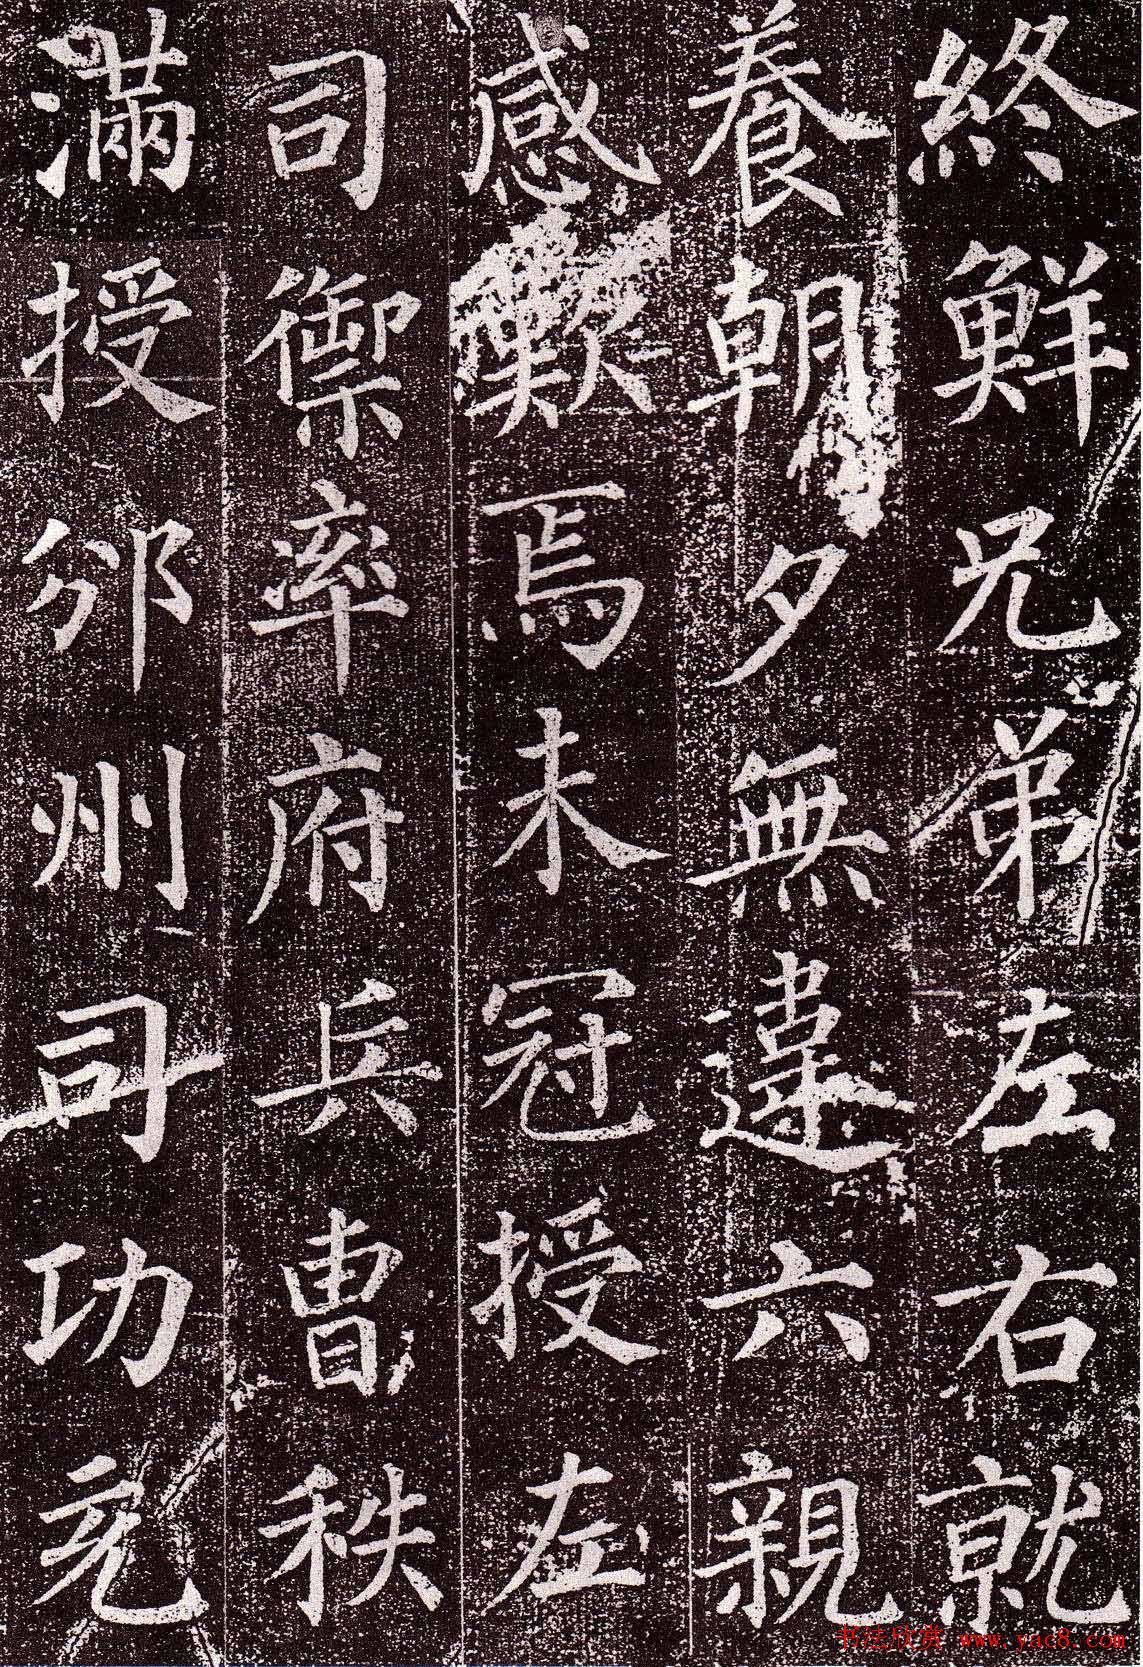 終鮮兄弟左右就
養朝夕無違六親
感歎焉未冠授左
司禦率府兵曹秩
滿授邠州司功充
书法欣赏 www.yac8.com